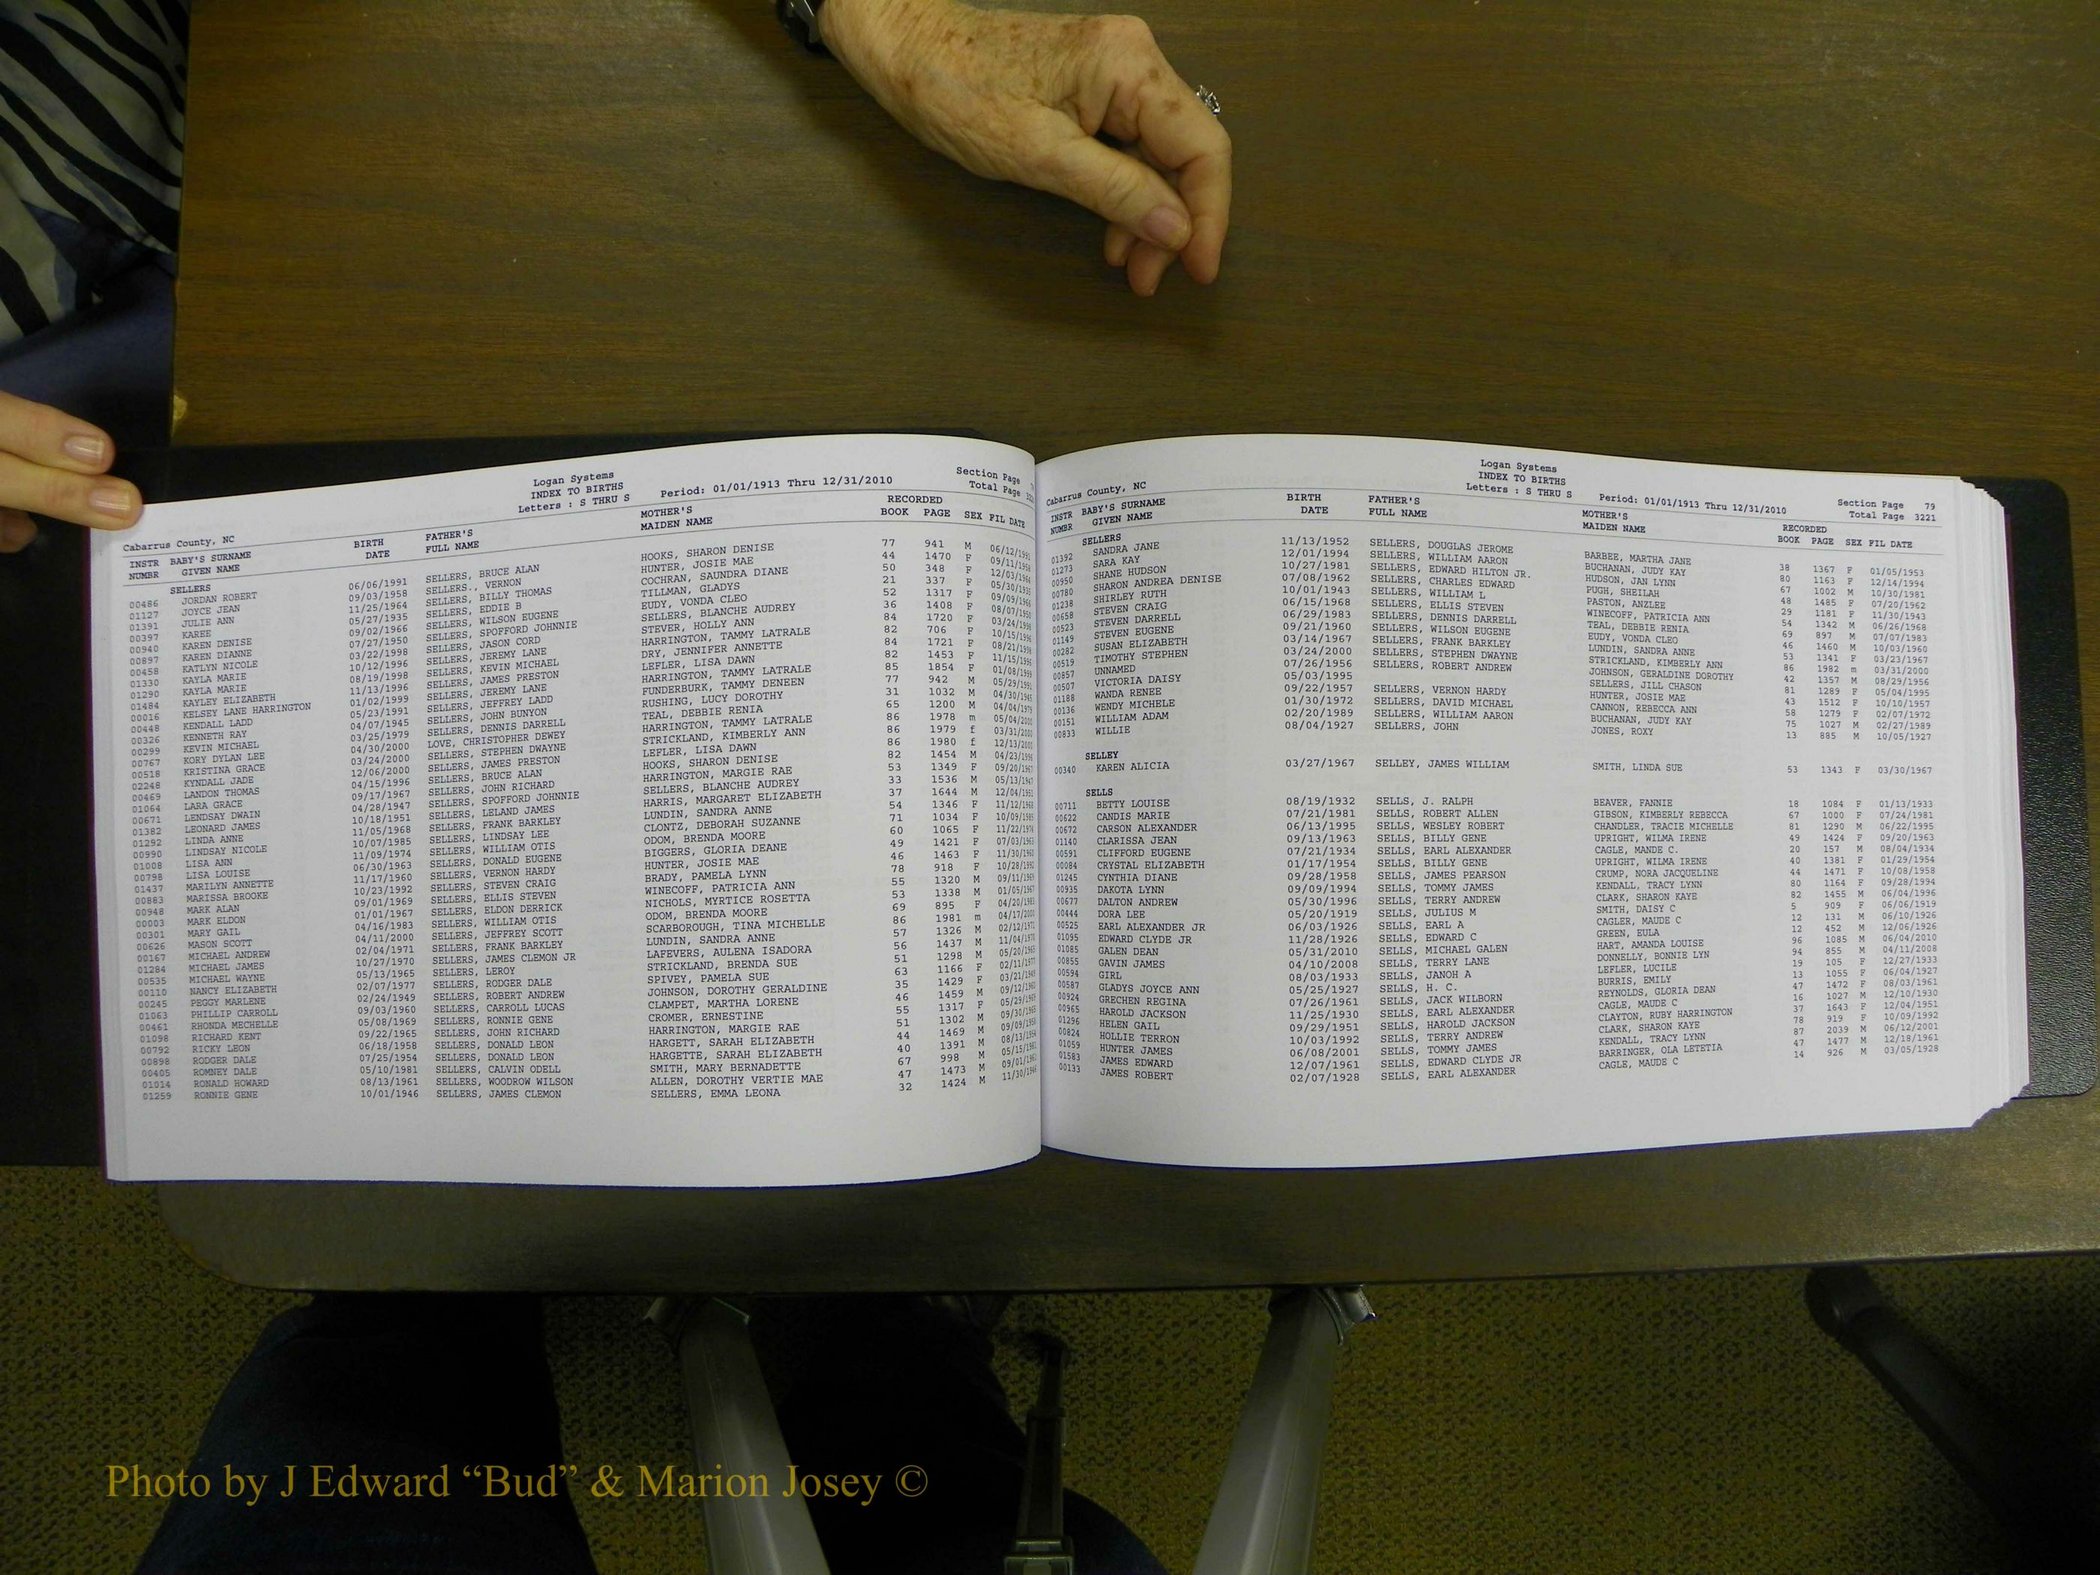 Logan Systems
INDEX TO BIRTHS
Letters : S THRU S Period: 01/01/1913 Thru 12/31/2010
Section Page
Total Page
Cabarrus County, NC
INSTR BABY'S SURNAME BIRTH FATHER'S MOTHER'S RECORDED
NUMBR GIVEN NAME DATE FULL NAME MAIDEN NAME BOOK PAGE SEX FIL DATE
SELLERS
00486 JORDAN ROBERT 06/06/1991 SELLERS, BRUCE ALAN HOOKS, SHARON DENISE 77 941 M 06/12/1991
01127 JOYCE JEAN 09/03/1958 SELLERS., VERNON HUNTER, JOSIE MAE 44 1470 F 09/11/1958
01391 JULIE ANN 11/25/1964 SELLERS, BILLY THOMAS COCHRAN, SAUNDRA DIANE 50 348 F 12/03/1964
00397 KAREE 05/27/1935 SELLERS, EDDIE B TILLMAN, GLADYS 21 337 F 05/30/1935
00940 KAREN DENISE 09/02/1966 SELLERS, WILSON EUGENE EUDY, VONDA CLEO 52 1317 F 09/09/1966
00897 KAREN DIANNE 07/27/1950 SELLERS, SPOFFORD JOHNNIE SELLERS, BLANCHE AUDREY 36 1408 F 08/07/1950
00458 KATLYN NICOLE 03/22/1998 SELLERS, JASON CORD STEVER, HOLLY ANN 84 1720 F 03/24/1998
01330 KAYLA MARIE 10/12/1996 SELLERS, JEREMY LANE HARRINGTON, TAMMY LATRALE 82 706 F 10/15/1996
01290 KAYLA MARIE 08/19/1998 SELLERS, KEVIN MICHAEL DRY, JENNIFER ANNETTE 84 1721 F 08/21/1998
01484 KAYLEY ELIZABETH 11/13/1996 SELLERS, JAMES PRESTON LEFLER, LISA DAWN 82 1453 F 11/15/1996
00016 KELSEY LANE HARRINGTON 01/02/1999 SELLERS, JEREMY LANE HARRINGTON, TAMMY LATRALE 85 1854 F 01/08/1999
00448 KENDALL LADD 05/23/1991 SELLERS, JEFFREY LADD FUNDERBURK, TAMMY DENEEN 77 942 M 05/29/1991
00326 KENNETH RAY 04/07/1945 SELLERS, JOHN BUNYON RUSHING, LUCY DOROTHY 31 1032 M 04/30/1945
00299 KEVIN MICHAEL 03/25/1979 SELLERS, DENNIS DARRELL TEAL, DEBBIE RENIA 65 1200 M 04/04/1979
00767 KORY DYLAN LEE 04/30/2000 LOVE, CHRISTOPHER DEWEY HARRINGTON, TAMMY LATRALE 86 1978 m 05/04/2000
00518 KRISTINA GRACE 03/24/2000 SELLERS, STEPHEN DWAYNE STRICKLAND, KIMBERLY ANN 86 1979 f 03/31/2000
02248 KYNDALL JADE 12/06/2000 SELLERS, JAMES PRESTON LEFLER, LISA DAWN 86 1980 f 12/13/2000
00469 LANDON THOMAS 04/15/1996 SELLERS, BRUCE ALAN HOOKS, SHARON DENISE 82 1454 M 04/23/1996
01064 LARA GRACE 09/17/1967 SELLERS, JOHN RICHARD HARRINGTON, MARGIE RAE 53 1349 F 09/20/1967
00671 LENDSAY DWAIN 04/28/1947 SELLERS, SPOFFORD JOHNNIE SELLERS, BLANCHE AUDREY 33 1536 M 05/13/1947
01382 LEONARD JAMES 10/18/1951 SELLERS, LELAND JAMES HARRIS, MARGARET ELIZABETH 37 1644 M 12/04/1951
01292 LINDA ANNE 11/05/1968 SELLERS, FRANK BARKLEY LUNDIN, SANDRA ANNE 54 1346 F 11/12/1968
00990 LINDSAY NICOLE 10/07/1985 SELLERS, LINDSAY LEE CLONTZ, DEBORAH SUZANNE 71 1034 F 10/09/1985
01008 LISA ANN 11/09/1974 SELLERS, WILLIAM OTIS ODOM, BRENDA MOORE 60 1065 F 11/22/1974
00798 LISA LOUISE 06/30/1963 SELLERS, DONALD EUGENE BIGGERS, GLORIA DEANE 49 1421 F 07/03/1963
01437 MARILYN ANNETTE 11/17/1960 SELLERS, VERNON HARDY HUNTER, JOSIE MAE 46 1463 F 11/30/1960
00883 MARISSA BROOKE 10/23/1992 SELLERS, STEVEN CRAIG BRADY, PAMELA LYNN 78 918 F 10/28/1992
00948 MARK ALAN 09/01/1969 SELLERS, ELLIS STEVEN WINECOFF, PATRICIA ANN 55 1320 M 09/11/1969
00003 MARK ELDON 01/01/1967 SELLERS, ELDON DERRICK NICHOLS, MYRTICE ROSETTA 53 1338 M 01/05/1967
00301 MARY GAIL 04/16/1983 SELLERS, WILLIAM OTIS ODOM, BRENDA MOORE 69 895 F 04/20/1983
00626 MASON SCOTT 04/11/2000 SELLERS, JEFFREY SCOTT SCARBOROUGH, TINA MICHELLE 86 1981 m 04/17/2000
00167 MICHAEL ANDREW 02/04/1971 SELLERS, FRANK BARKLEY LUNDIN, SANDRA ANNE 57 1326 M 02/12/1971
01284 MICHAEL JAMES 10/27/1970 SELLERS, JAMES CLEMON JR LAFEVERS, AULENA ISADORA 56 1437 M 11/04/1970
00535 MICHAEL WAYNE 05/13/1965 SELLERS, LEROY STRICKLAND, BRENDA SUE 51 1298 M 05/20/1965
00110 NANCY ELIZABETH 02/07/1977 SELLERS, RODGER DALE SPIVEY, PAMELA SUE 63 1166 F 02/11/1977
00245 PEGGY MARLENE 02/24/1949 SELLERS, ROBERT ANDREW JOHNSON, DOROTHY GERALDINE 35 1429 F 03/21/1949
01063 PHILLIP CARROLL 09/03/1960 SELLERS, CARROLL LUCAS CLAMPET, MARTHA LORENE 46 1459 M 09/12/1960
00461 RHONDA MECHELLE 05/08/1969 SELLERS, RONNIE GENE CROMER, ERNESTINE 55 1317 F 05/29/1969
01098 RICHARD KENT 09/22/1965 SELLERS, JOHN RICHARD HARRINGTON, MARGIE RAE 51 1302 M 09/30/1965
00792 RICKY LEON 06/18/1958 SELLERS, DONALD LEON HARGETT, SARAH ELIZABETH 44 1469 M 09/09/1958
00898 RODGER DALE 07/25/1954 SELLERS, DONALD LEON HARGETTE, SARAH ELIZABETH 40 1391 M 08/13/1954
00405 ROMNEY DALE 05/10/1981 SELLERS, CALVIN ODELL SMITH, MARY BERNADETTE 67 998 M 05/15/1981
01014 RONALD HOWARD 08/13/1961 SELLERS, WOODROW WILSON ALLEN, DOROTHY VERTIE MAE 47 1473 M 09/01/1961
01259 RONNIE GENE 10/01/1946 SELLERS, JAMES CLEMON SELLERS, EMMA LEONA 32 1424 M 11/30/1946
Logan Systems
INDEX TO BIRTHS
Letters : S THRU S Period: 01/01/1913 Thru 12/31/2010
Section Page 79
Total Page 3221
Cabarrus County, NC
INSTR BABY'S SURNAME BIRTH FATHER'S MOTHER'S RECORDED
NUMBR GIVEN NAME DATE FULL NAME MAIDEN NAME BOOK PAGE SEX FIL DATE
SELLERS
01392 SANDRA JANE 11/13/1952 SELLERS, DOUGLAS JEROME BARBEE, MARTHA JANE 38 1367 F 01/05/1953
01273 SARA KAY 12/01/1994 SELLERS, WILLIAM AARON BUCHANAN, JUDY KAY 80 1163 F 12/14/1994
00950 SHANE HUDSON 10/27/1981 SELLERS, EDWARD HILTON JR. HUDSON, JAN LYNN 67 1002 M 10/30/1981
00780 SHARON ANDREA DENISE 07/08/1962 SELLERS, CHARLES EDWARD PUGH, SHEILAH 48 1485 F 07/20/1962
01238 SHIRLEY RUTH 10/01/1943 SELLERS, WILLIAM L PASTON, ANZLEE 29 1181 F 11/30/1943
00658 STEVEN CRAIG 06/15/1968 SELLERS, ELLIS STEVEN WINECOFF, PATRICIA ANN 54 1342 M 06/26/1968
00523 STEVEN DARRELL 06/29/1983 SELLERS, DENNIS DARRELL TEAL, DEBBIE RENIA 69 897 M 07/07/1983
01149 STEVEN EUGENE 09/21/1960 SELLERS, WILSON EUGENE EUDY, VONDA CLEO 46 1460 M 10/03/1960
00282 SUSAN ELIZABETH 03/14/1967 SELLERS, FRANK BARKLEY LUNDIN, SANDRA ANNE 53 1341 F 03/23/1967
00519 TIMOTHY STEPHEN 03/24/2000 SELLERS, STEPHEN DWAYNE STRICKLAND, KIMBERLY ANN 86 1982 m 03/31/2000
00857 UNNAMED 07/26/1956 SELLERS, ROBERT ANDREW JOHNSON, GERALDINE DOROTHY 42 1357 M 08/29/1956
00507 VICTORIA DAISY 05/03/1995 SELLERS, JILL CHASON 81 1289 F 05/04/1995
01188 WANDA RENEE 09/22/1957 SELLERS, VERNON HARDY HUNTER, JOSIE MAE 43 1512 F 10/10/1957
00136 WENDY MICHELE 01/30/1972 SELLERS, DAVID MICHAEL CANNON, REBECCA ANN 58 1279 F 02/07/1972
00151 WILLIAM ADAM 02/20/1989 SELLERS, WILLIAM AARON BUCHANAN, JUDY KAY 75 1027 M 02/27/1989
00833 WILLIE 08/04/1927 SELLERS, JOHN JONES, ROXY 13 885 M 10/05/1927
SELLEY
00340 KAREN ALICIA 03/27/1967 SELLEY, JAMES WILLIAM SMITH, LINDA SUE 53 1343 F 03/30/1967
SELLS
00711 BETTY LOUISE 08/19/1932 SELLS, J. RALPH BEAVER, FANNIE 18 1084 F 01/13/1933
00622 CANDIS MARIE 07/21/1981 SELLS, ROBERT ALLEN GIBSON, KIMBERLY REBECCA 67 1000 F 07/24/1981
00672 CARSON ALEXANDER 06/13/1995 SELLS, WESLEY ROBERT CHANDLER, TRACIE MICHELLE 81 1290 M 06/22/1995
01140 CLARISSA JEAN 09/13/1963 SELLS, BILLY GENE UPRIGHT, WILMA IRENE 49 1424 F 09/20/1963
00591 CLIFFORD EUGENE 07/21/1934 SELLS, EARL ALEXANDER CAGLE, MANDE C. 20 157 M 08/04/1934
00084 CRYSTAL ELIZABETH 01/17/1954 SELLS, BILLY GENE UPRIGHT, WILMA IRENE 40 1381 F 01/29/1954
01245 CYNTHIA DIANE 09/28/1958 SELLS, JAMES PEARSON CRUMP, NORA JACQUELINE 44 1471 F 10/08/1958
00935 DAKOTA LYNN 09/09/1994 SELLS, TOMMY JAMES KENDALL, TRACY LYNN 80 1164 F 09/28/1994
00677 DALTON ANDREW 05/30/1996 SELLS, TERRY ANDREW CLARK, SHARON KAYE 82 1455 M 06/04/1996
00444 DORA LEE 05/20/1919 SELLS, JULIUS M SMITH, DAISY C 5 909 F 06/06/1919
00525 EARL ALEXANDER JR 06/03/1926 SELLS, EARL A CAGLER, MAUDE C 12 131 M 06/10/1926
01095 EDWARD CLYDE JR 11/28/1926 SELLS, EDWARD C GREEN, EULA 12 452 M 12/06/1926
01085 GALEN DEAN 05/31/2010 SELLS, MICHAEL GALEN HART, AMANDA LOUISE 96 1085 M 06/04/2010
00855 GAVIN JAMES 04/10/2008 SELLS, TERRY LANE DONNELLY, BONNIE LYN 94 855 M 04/11/2008
00594 GIRL 08/03/1933 SELLS, JANOH A LEFLER, LUCILE 19 105 F 12/27/1933
00587 GLADYS JOYCE ANN 05/25/1927 SELLS, H. C. BURRIS, EMILY 13 1055 F 06/04/1927
00924 GRECHEN REGINA 07/26/1961 SELLS, JACK WILBORN REYNOLDS, GLORIA DEAN 47 1472 F 08/03/1961
00965 HAROLD JACKSON 11/25/1930 SELLS, EARL ALEXANDER CAGLE, MAUDE C 16 1027 M 12/10/1930
01296 HELEN GAIL 09/29/1951 SELLS, HAROLD JACKSON CLAYTON, RUBY HARRINGTON 37 1643 F 12/04/1951
00824 HOLLIE TERRON 10/03/1992 SELLS, TERRY ANDREW CLARK, SHARON KAYE 78 919 F 10/09/1992
01059 HUNTER JAMES 06/08/2001 SELLS, TOMMY JAMES KENDALL, TRACY LYNN 87 2039 M 06/12/2001
01583 JAMES EDWARD 12/07/1961 SELLS, EDWARD CLYDE JR BARRINGER, OLA LETETIA 47 1477 M 12/18/1961
00133 JAMES ROBERT 02/07/1928 SELLS, EARL ALEXANDER CAGLE, MAUDE C 14 926 M 03/05/1928
Photo by J Edward “Bud” & Marion Josey ©